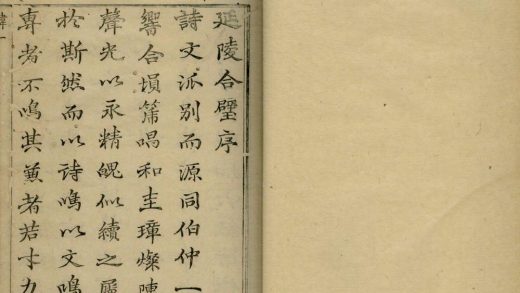 延陵合璧序
詩文派別而源同伯仲一
響合塤箎唱和圭璋燦陳
聲光以永精魄似續之
於斯然而以詩鳴以文鳴
專者不鳴其蒹者若寸九